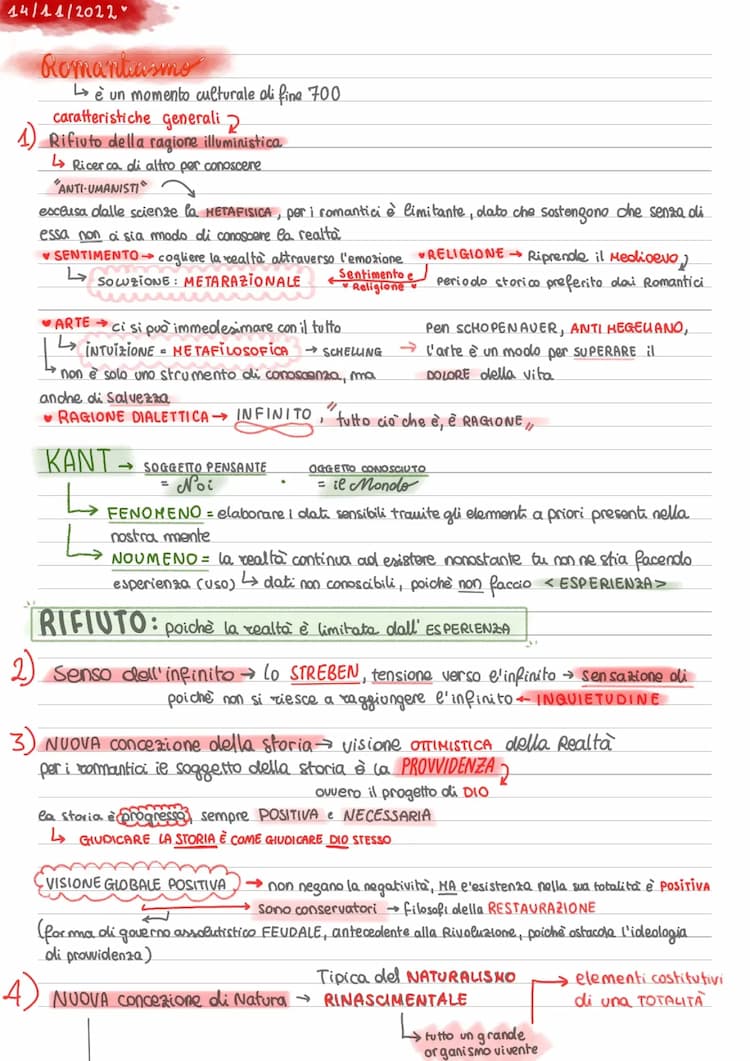 14/11/2022
Romanticismo
è un momento culturale di fine 700
caratteristiche generali
1) Rifiuto della ragione illuministica
Ricerca di altro per conoscere
"ANTI-UMANISTI"
esclusa dalle scienze la METAFISICA, per i romantici è limitante, dato che sostengono che senza di
essa non ci sia modo di conoscere la realtà
SENTIMENTO → cogliere la realtà attraverso l'emozione
SOLUZIONE: METARAZIONALE
Sentimento e
Religione
RELIGIONE → Riprende il Medioevo
Periodo storico preferito dai Romantici
ARTE → ci si può immedesimare con il tutto
INTUIZIONE = METAFILOSOFICA → SCHELLING
non è solo uno strumento di conoscenza, ma
anche di Salvezza
Per SCHOPENAUER, ANTI HEGELIANO,
→ l'arte è un modo per SUPERARE il
DOLORE della vita
RAGIONE DIALETTICA → INFINITO, "tutto ciò che è, è RAGIONE"
KANT → SOGGETTO PENSANTE · OGGETTO CONOSCIUTO
= Noi = il Mondo
FENOMENO = elaborare i dati sensibili tramite gli elementi a priori presenti nella
nostra mente
NOUMENO = la realtà continua ad esistere nonostante tu non ne stia facendo
esperienza (uso) ↳ dati non conoscibili, poichè non faccio <ESPERIENZA>
RIFIUTO: poichè la realtà è limitata dall'ESPERIENZA
2) Senso dell'infinito → lo STREBEN, tensione verso l'infinito → sensazione di
poichè non si riesce a raggiungere l'infinito ← INQUIETUDINE
3) NUOVA concezione della storia → visione OTTIMISTICA della Realtà
per i romantici il soggetto della storia è la PROVVIDENZA
ovvero il progetto di DIO
la storia è progresso, sempre POSITIVA e NECESSARIA
↳ GIUDICARE LA STORIA È COME GIUDICARE DIO STESSO
VISIONE GLOBALE POSITIVA → non negano la negatività, MA l'esistenza nella sua totalità è POSITIVA
sono conservatori → filosofi della RESTAURAZIONE
(forma di governo assolutistico FEUDALE, antecedente alla Rivoluzione, poichè ostacola l'ideologia
di provvidenza)
4) NUOVA concezione di Natura → Tipica del NATURALISMO
RINASCIMENTALE
tutto un grande
organismo vivente
→ elementi costitutivi
di una TOTALITÀ